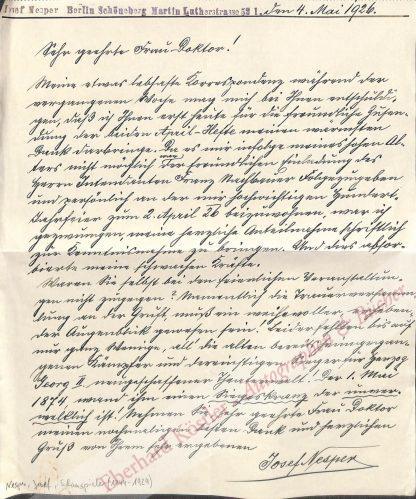 Josef Nesper Berlin Schöneberg Martin Lutherstrasse 53 I. den 4. Mai 1926.
Sehr geehrte Frau Doktor!
Meine etwas lebhafte Correspondenz während der
vergangenen Woche mag mich bei Ihnen entschuldi-
gen, daß ich Ihnen erst heute für die freundliche Zusen-
dung der beiden April-Hefte meinen wärmsten
Dank darbringe. Da es mir infolge meines hohen Al-
ters nicht möglich war der freundlichen Einladung des
Herrn Intendanten Franz Nachbauer Folge zu geben
und persönlich an der mir hochwichtigen Hundert-
Jahrfeier zum 2. April 26 beizuwohnen, war ich
gezwungen, meine herzliche Anteilnahme schriftlich
zur Kenntnisnahme zu bringen. Und dies absor-
bierte meine schwachen Kräfte.
Waren Sie selbst bei den feierlichen Veranstaltun-
gen nicht zugegen? Namentlich die Trauerversamm-
lung an der Gruft, muß ein weihevoller, erhebender
Augenblick gewesen sein! Leider fehlen bis auf
nur ganz Wenige, all die alten
Kämpfer und Sieger für Herzog
Georg II. neugeschaffener Den 1. Mai
1874 wand ihm einen Siegeskranz der unver-
welklich ist! Nehmen Sie sehr geehrte Frau Doktor
meinen nochmaligen Dank und herzlichen
Gruß von Ihrem ergebenen
Josef Nesper
Nesper, Josef, Schauspieler (1844-1929)
Eberhard Köstler · Autographen & Bücher